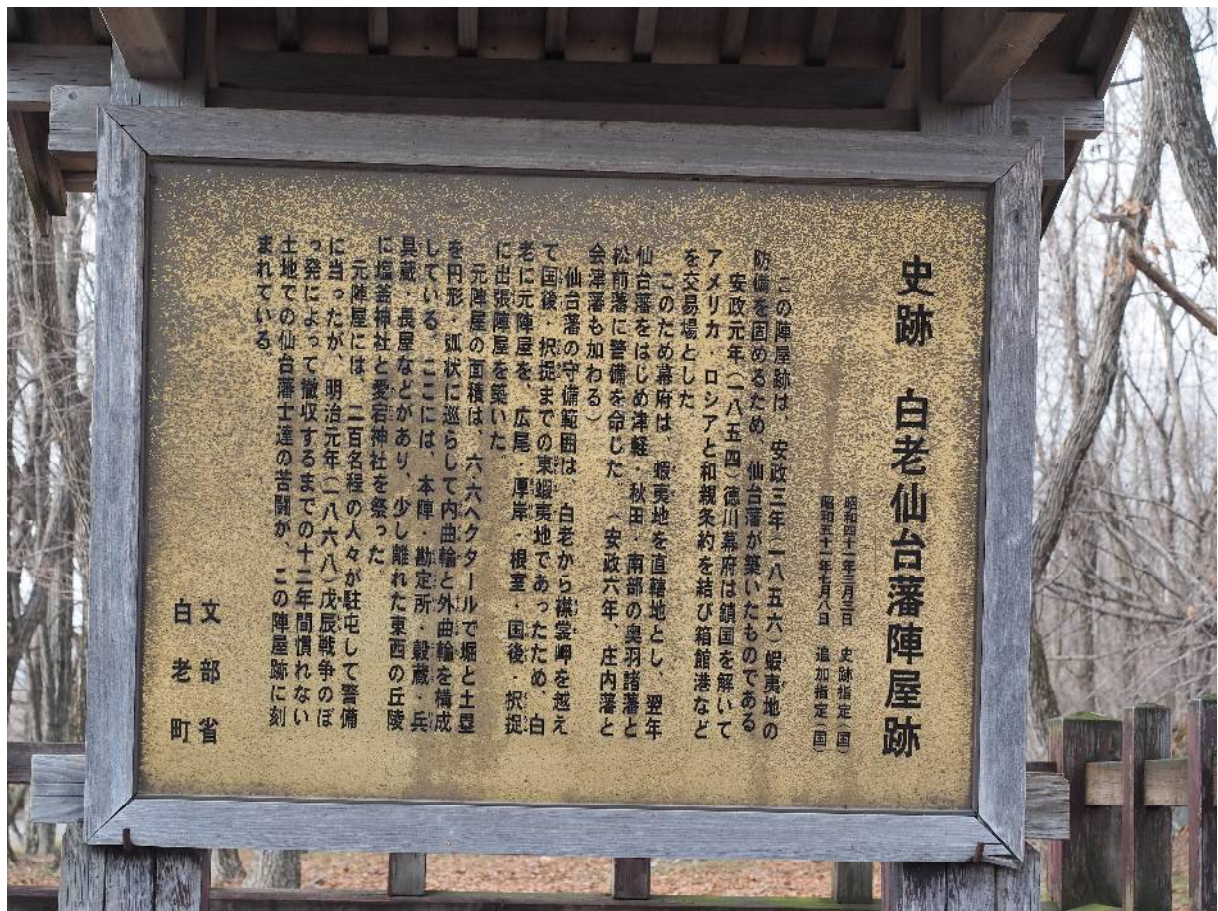 史跡　白老仙台藩陣屋跡
昭和四十一年三月三日　史跡指定（国）
昭和五十一年七月八日　追加指定（国）
この陣屋跡は、安政三年（一八五六）蝦夷地の
防備を固めるため、仙台藩が築いたものである
安政元年（一八五四）徳川幕府は鎖国を解いて
アメリカ・ロシアと和親条約を結び箱館港など
を交易場とした
このため幕府は、蝦夷地を直轄地とし、翌年
仙台藩をはじめ津軽・秋田・南部の奥羽諸藩と
松前藩に警備を命じた（安政六年、庄内藩と
会津藩も加わる）
仙台藩の守備範囲は、白老から襟裳岬を越え
て国後・択捉までの東蝦夷地であったため、白
老に元陣屋を、広尾・厚岸・根室・国後・択捉
に出張陣屋を築いた
元陣屋の面積は、六・六ヘクタールで堀と土塁
を円形・弧状に巡らして内曲輪と外曲輪を構成
している。ここには、本陣・勘定所・穀蔵・兵
具蔵・長屋などがあり、少し離れた東西の丘陵
に塩釜神社と愛宕神社を祭った
元陣屋には、二百名程の人々が駐屯して警備
に当ったが、明治元年（一八六八）戊辰戦争のぼ
っ発によって撤収するまでの十二年間慣れない
土地での仙台藩士達の苦闘が、この陣屋跡に刻
まれている
文部省
白老町